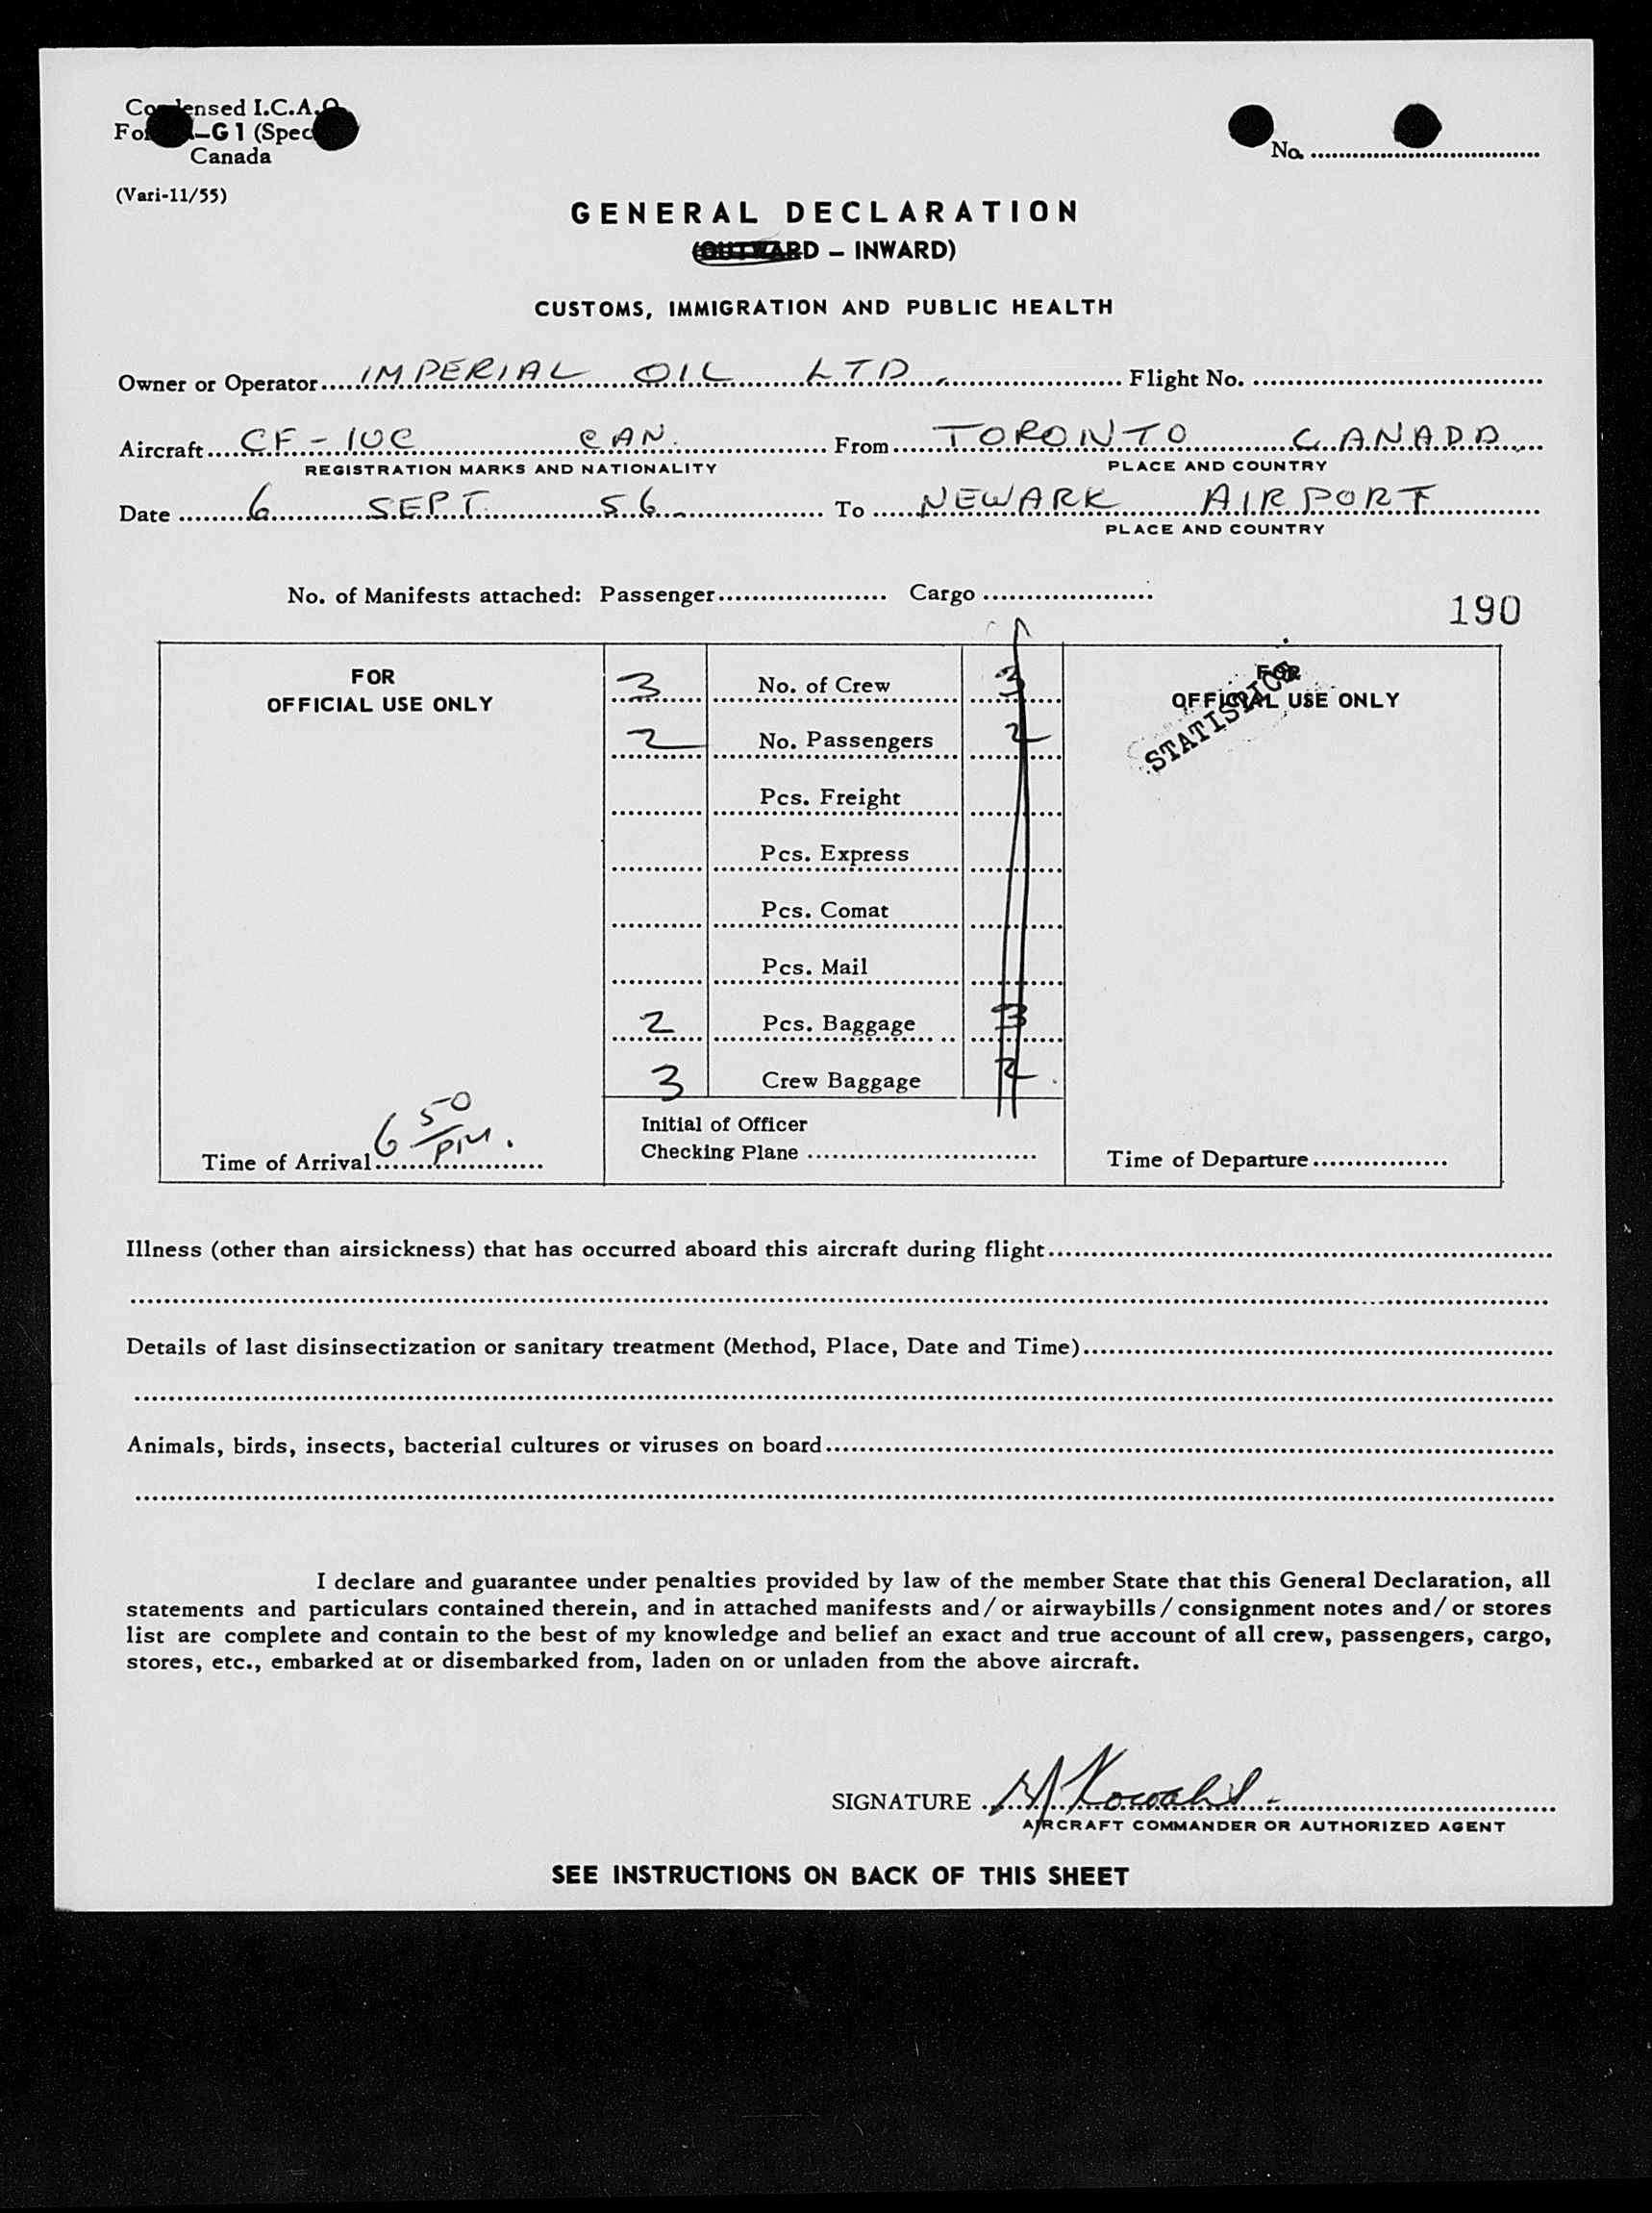 Condensed I.C.A.O.
G1 (Spec
Canada
(Vari-11/55)
No.
GENERAL DECLARATION
(OUTWARD – INWARD)
CUSTOMS, IMMIGRATION AND PUBLIC HEALTH
Owner or Operator IMPERIAL OIL LTD. Flight No.
Aircraft CF-IOC CAN. From TORONTO CANADA
REGISTRATION MARKS AND NATIONALITY PLACE AND COUNTRY
Date 6 SEPT. 56 To NEWARK AIRPORT
PLACE AND COUNTRY
No. of Manifests attached: Passenger Cargo
190
FOR
OFFICIAL USE ONLY
3 No. of Crew 3
2 No. Passengers 2
Pcs. Freight
Pcs. Express
Pcs. Comat
Pcs. Mail
2 Pcs. Baggage 3
3 Crew Baggage 2
Time of Arrival 6 50 PM.
Initial of Officer
Checking Plane
FOR
OFFICIAL USE ONLY
STATISTICS
Time of Departure
Illness (other than airsickness) that has occurred aboard this aircraft during flight
Details of last disinsectization or sanitary treatment (Method, Place, Date and Time)
Animals, birds, insects, bacterial cultures or viruses on board
I declare and guarantee under penalties provided by law of the member State that this General Declaration, all
statements and particulars contained therein, and in attached manifests and/or airwaybills/consignment notes and/or stores
list are complete and contain to the best of my knowledge and belief an exact and true account of all crew, passengers, cargo,
stores, etc., embarked at or disembarked from, laden on or unladen from the above aircraft.
SIGNATURE
AIRCRAFT COMMANDER OR AUTHORIZED AGENT
SEE INSTRUCTIONS ON BACK OF THIS SHEET